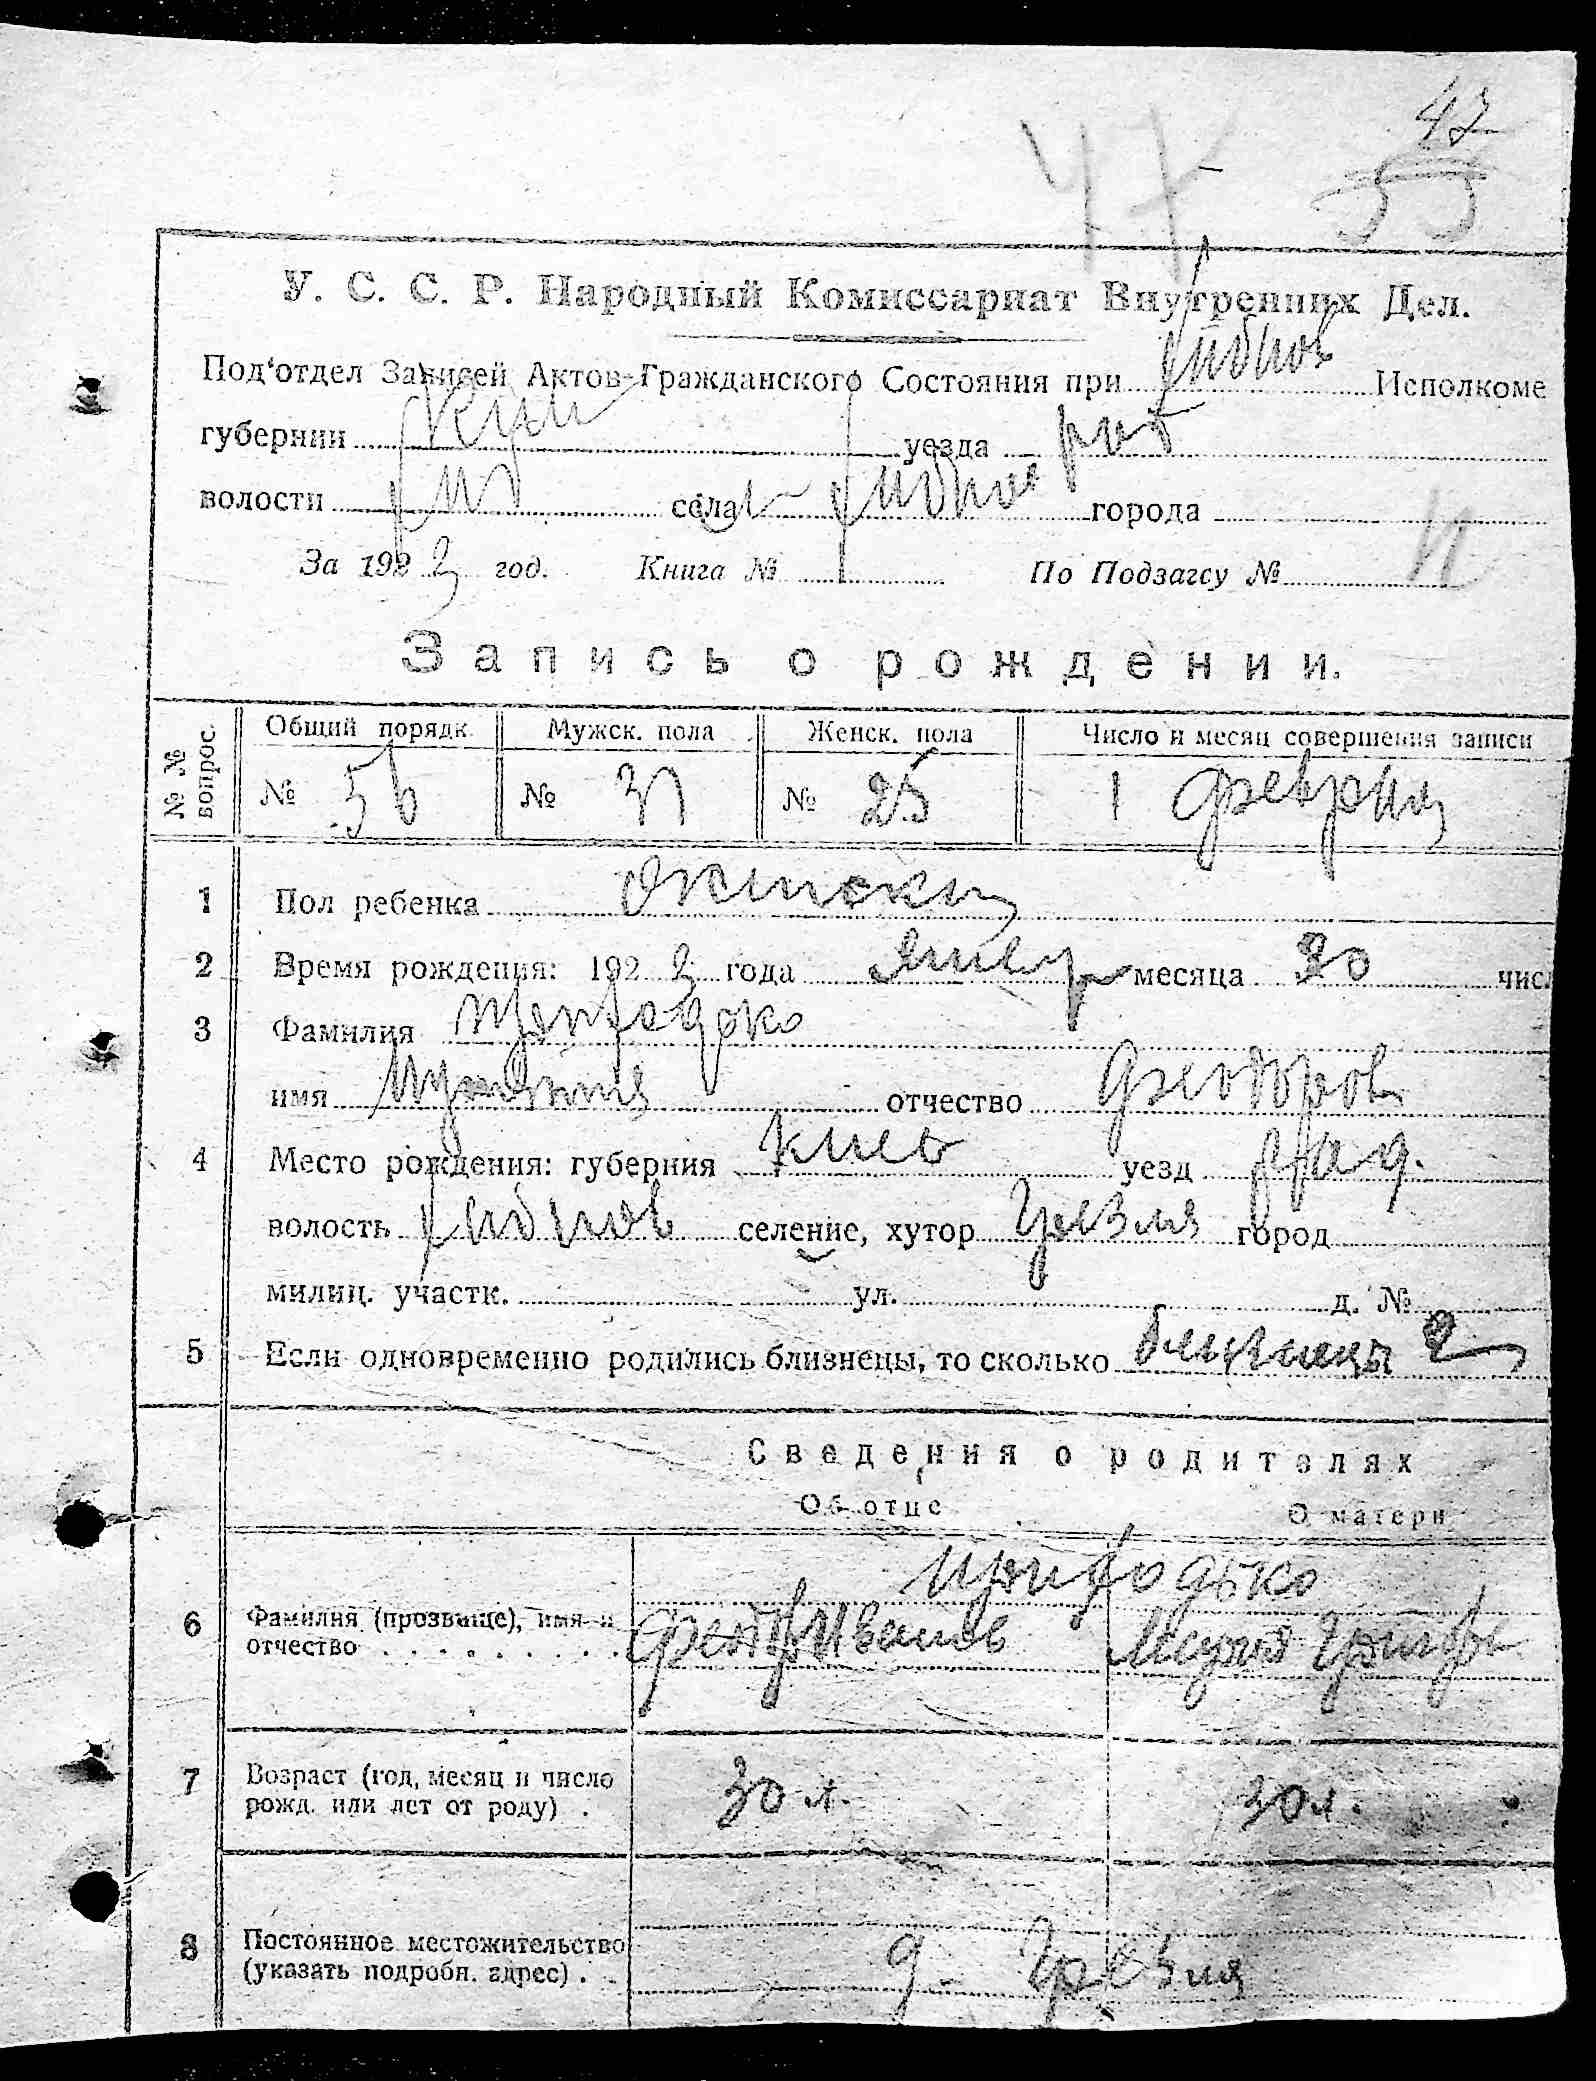 47
42
У. С. С. Р. Народный Комиссариат Внутренних Дел.
Под‘отдел Записей Актов Гражданского Состояния при Исполкоме
губернии уезда
волости села города
За 1922 год. Книга № По Подзагсу №
Запись о рождении.
№ № вопрос. Общий порядк. Мужск. пола Женск. пола Число и месяц совершения записи
№ 56 № 31 № 25 1 февраля
1 Пол ребенка женски
2 Время рождения: 1922 года январ месяца 30 числ
3 Фамилия Приходько
имя отчество Феодоров
4 Место рождения: губерния Киев уезд Рад.
волость селение, хутор Гребля город
милиц. участк. ул. д. №
5 Если одновременно родились близнецы, то сколько близнецы 2
Сведения о родителях
Об отце О матери
Приходько
6 Фамилия (прозвище), имя и Феодор Иванов Мария
отчество
7 Возраст (год, месяц и число 30 л. 30 л.
рожд. или лет от роду) .
8 Постоянное местожительство
(указать подробн. адрес) . д. Гребля